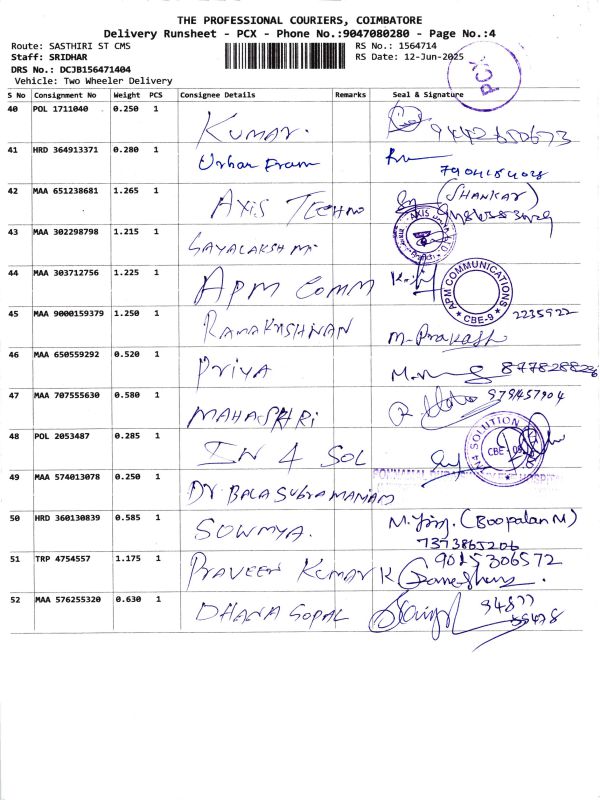 THE PROFESSIONAL COURIERS, COIMBATORE
Delivery Runsheet - PCX - Phone No.:9047080280 - Page No.:4
Route: SASTHIRI ST CMS RS No.: 1564714
Staff: SRIDHAR RS Date: 12-Jun-2025
DRS No.: DCJB156471404
Vehicle: Two Wheeler Delivery
PCX
S No Consignment No Weight PCS Consignee Details Remarks Seal & Signature
40 POL 1711040 0.250 1 Kumar. 9442650673
41 HRD 364913371 0.280 1 Urban
42 MAA 651238681 1.265 1 AXIS TECHNO (SHANKAR)
43 MAA 302298798 1.215 1 AXIS
44 MAA 303712756 1.225 1 APM COMM APM COMMUNICATIONS CBE-9
45 MAA 9000159379 1.250 1 RAMAKRISHNAN 2235922 M. Prakash
46 MAA 650559292 0.520 1 PRIYA
47 MAA 707555630 0.580 1 MAHASHRI
48 POL 2053487 0.285 1 IN 4 SOL IN4 SOLUTION CBE
49 MAA 574013078 0.250 1 Dr BALASUBRAMANIAM
50 HRD 360130839 0.585 1 SOWMYA. (Boopalan M)
7373865206
51 TRP 4754557 1.175 1 PRAVEEN KUMAR K 9015306572
52 MAA 576255320 0.630 1 DHANA GOPAL 94877